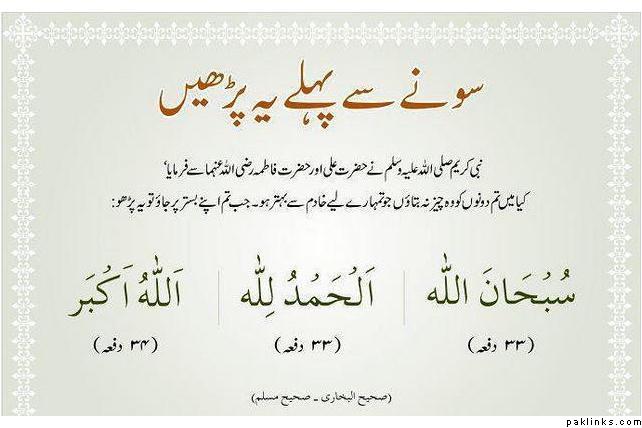 سونے سے پہلے یہ پڑھیں
نبی کریم صلی اللہ علیہ وسلم نے حضرت علی اور حضرت فاطمہ رضی اللہ عنہما سے فرمایا‘
کیا میں تم دونوں کو وہ چیز نہ بتاؤں جو تمہارے لیے خادم سے بہتر ہو۔ جب تم اپنے بستر پر جاؤ تو یہ پڑھو:
سُبْحَانَ اللّٰه اَلْحَمْدُ لِلّٰه اَللّٰهُ اَكْبَر
(۳۳ دفعہ) (۳۳ دفعہ) (۳۴ دفعہ)
(صحیح البخاری ـ صحیح مسلم)
paklinks.com